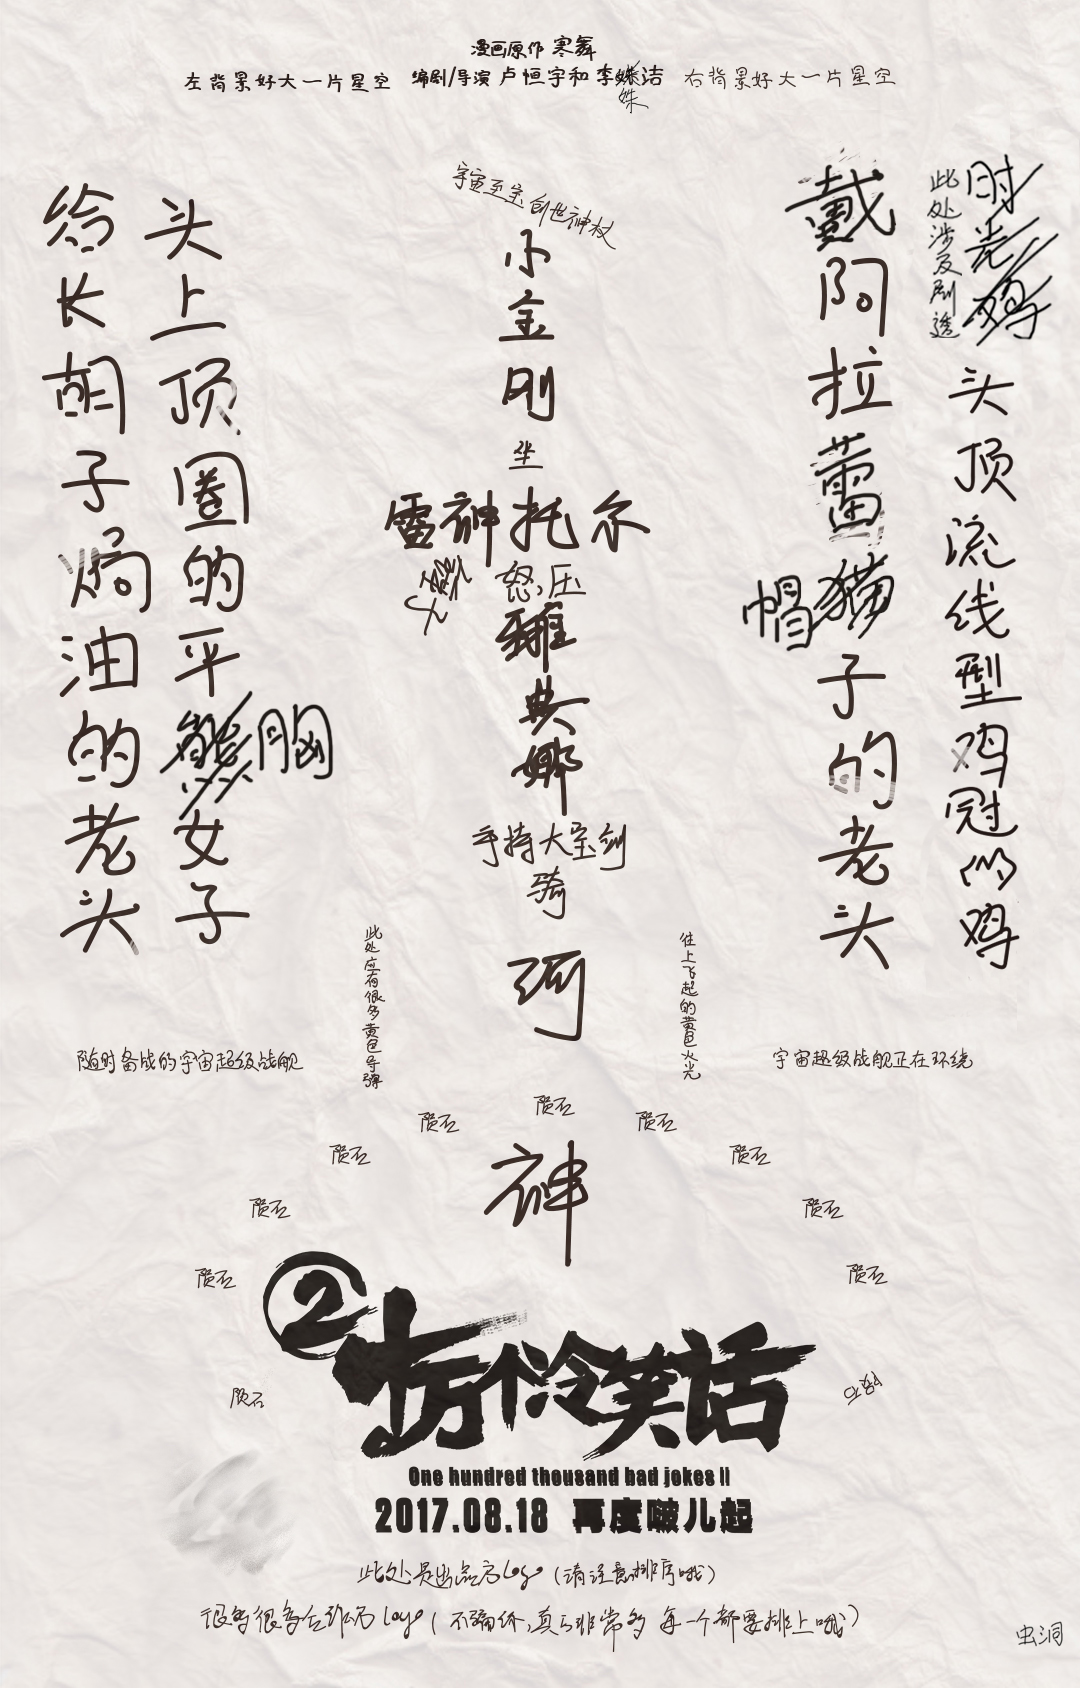 漫画原作 寒舞
左背景好大一片星空 编剧/导演 卢恒宇和李姝洁 右背景好大一片星空
姝
宇宙至宝创世神杖
小金刚
坐
雷神托尔
怒压
雅典娜
手持大宝剑
骑
河
神
头上顶圈的平胸女子
给长胡子焗油的老头
时光鸡
此处涉及剧透
头顶流线型鸡冠的鸡
戴阿拉蕾帽子的老头
此处应有很多黄色导弹
往上飞起的黄色火光
随时备战的宇宙超级战舰
宇宙超级战舰正在环绕
陨石
陨石
陨石
陨石
陨石
陨石
陨石
陨石
陨石
陨石
火焰
②十万个冷笑话
One hundred thousand bad jokes II
2017.08.18 再度啵儿起
此处是出品方Logo(请注意排序哦)
很多很多合作方Logo(不骗你,真的非常多 每一个都要排上哦)
虫洞